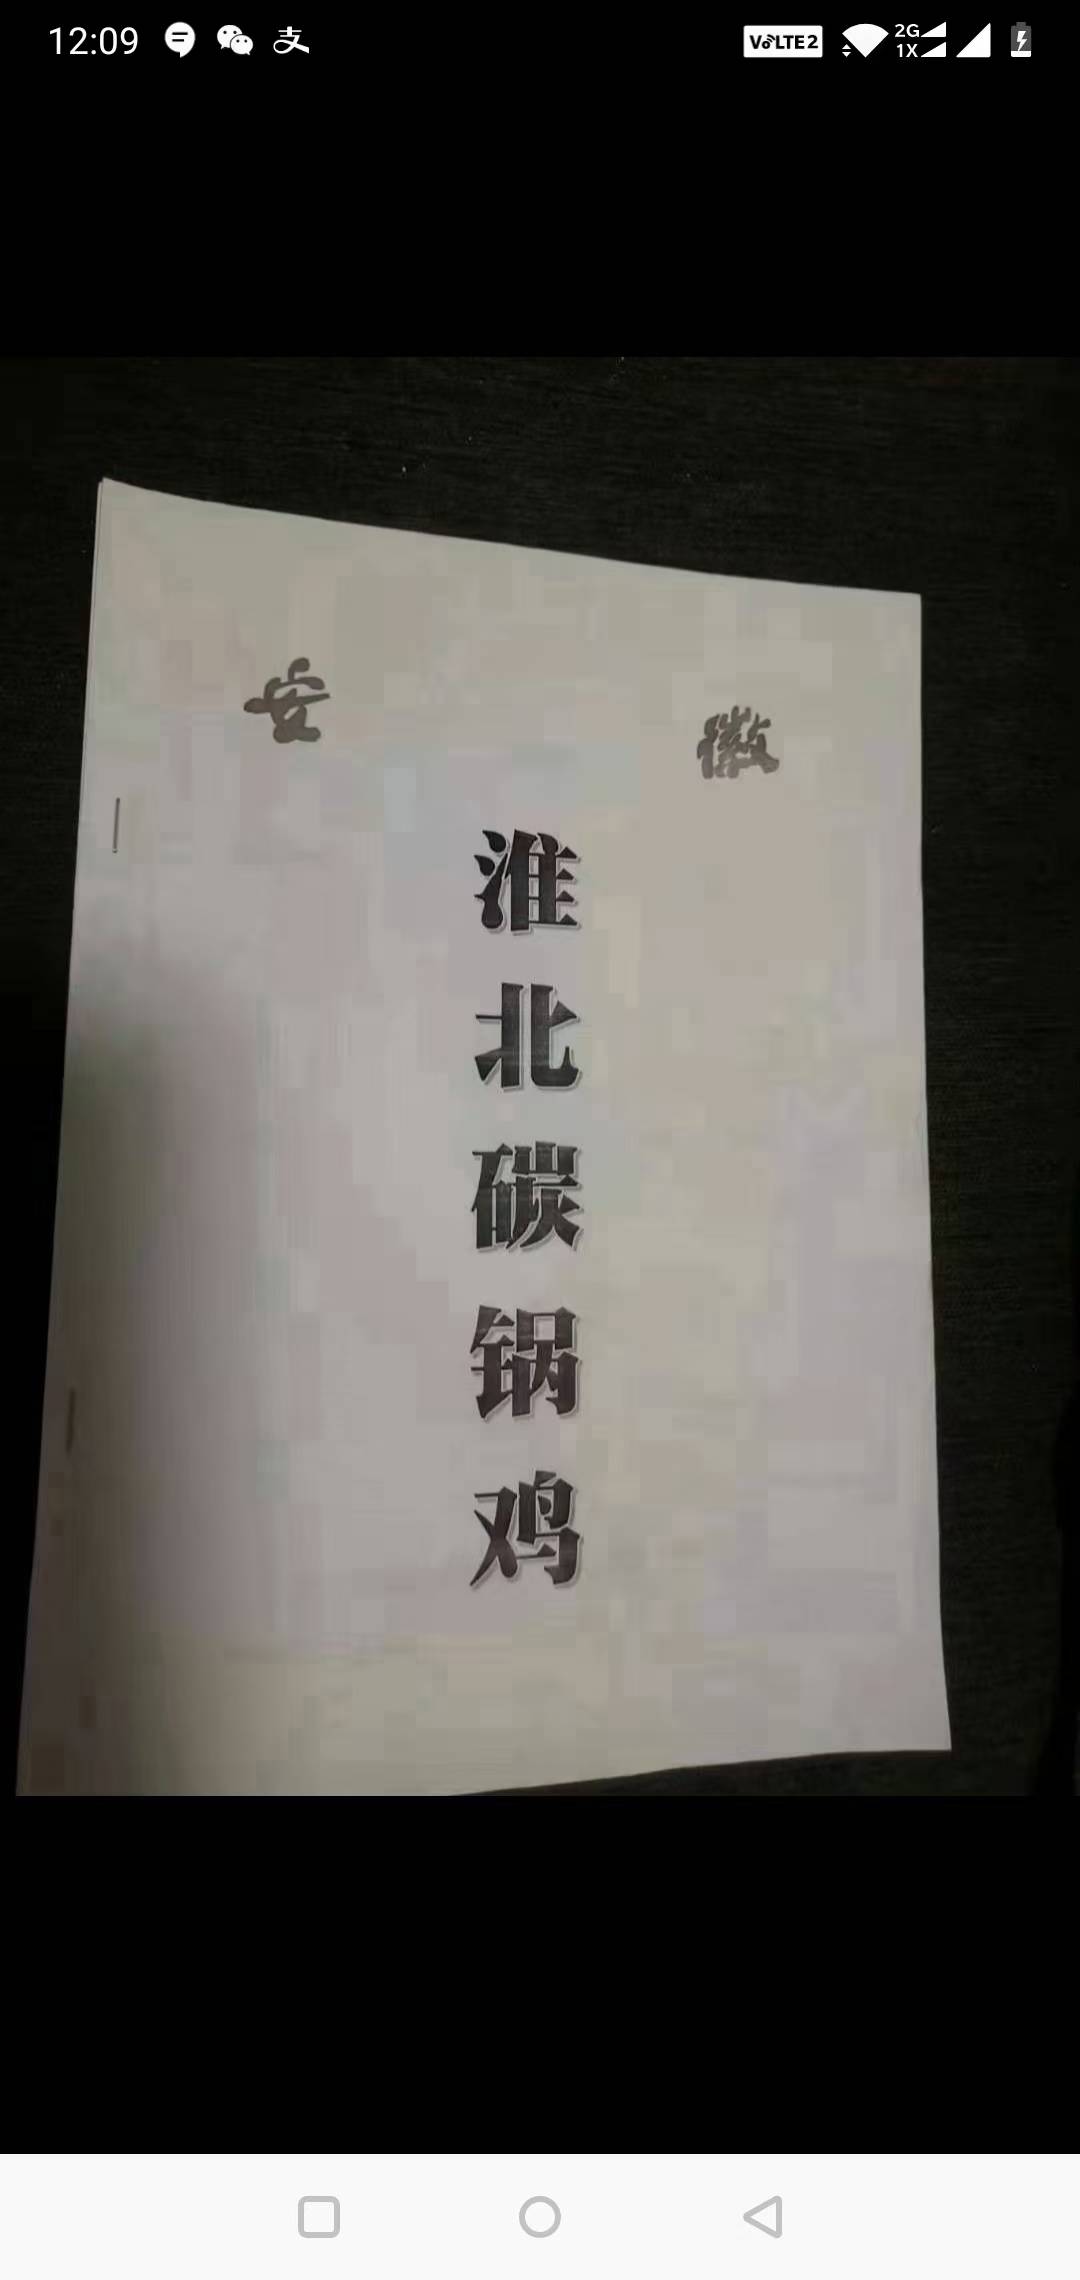 12:09
VoLTE2
2G
1X
安 徽
淮
北
碳
锅
鸡